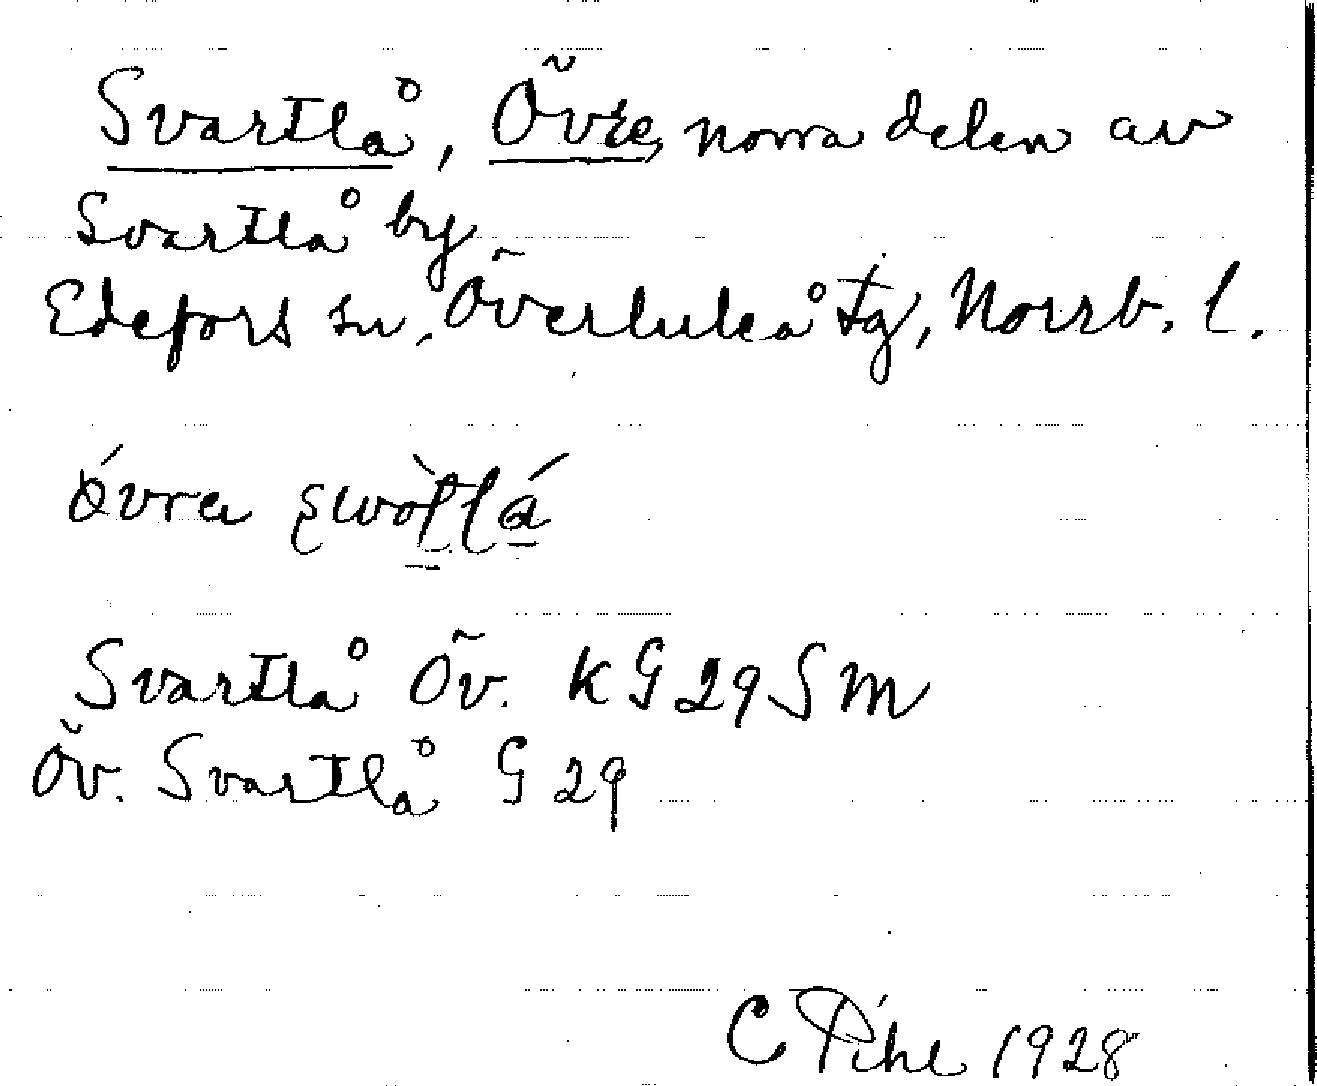 Svartlå, Övre, norra delen av
Svartlå by
Edefors sn, Överluleå tg, Norrb. l.
Svartlå Öv. KG 29 SM
Öv. Svartlå G 29
C Pihl 1928